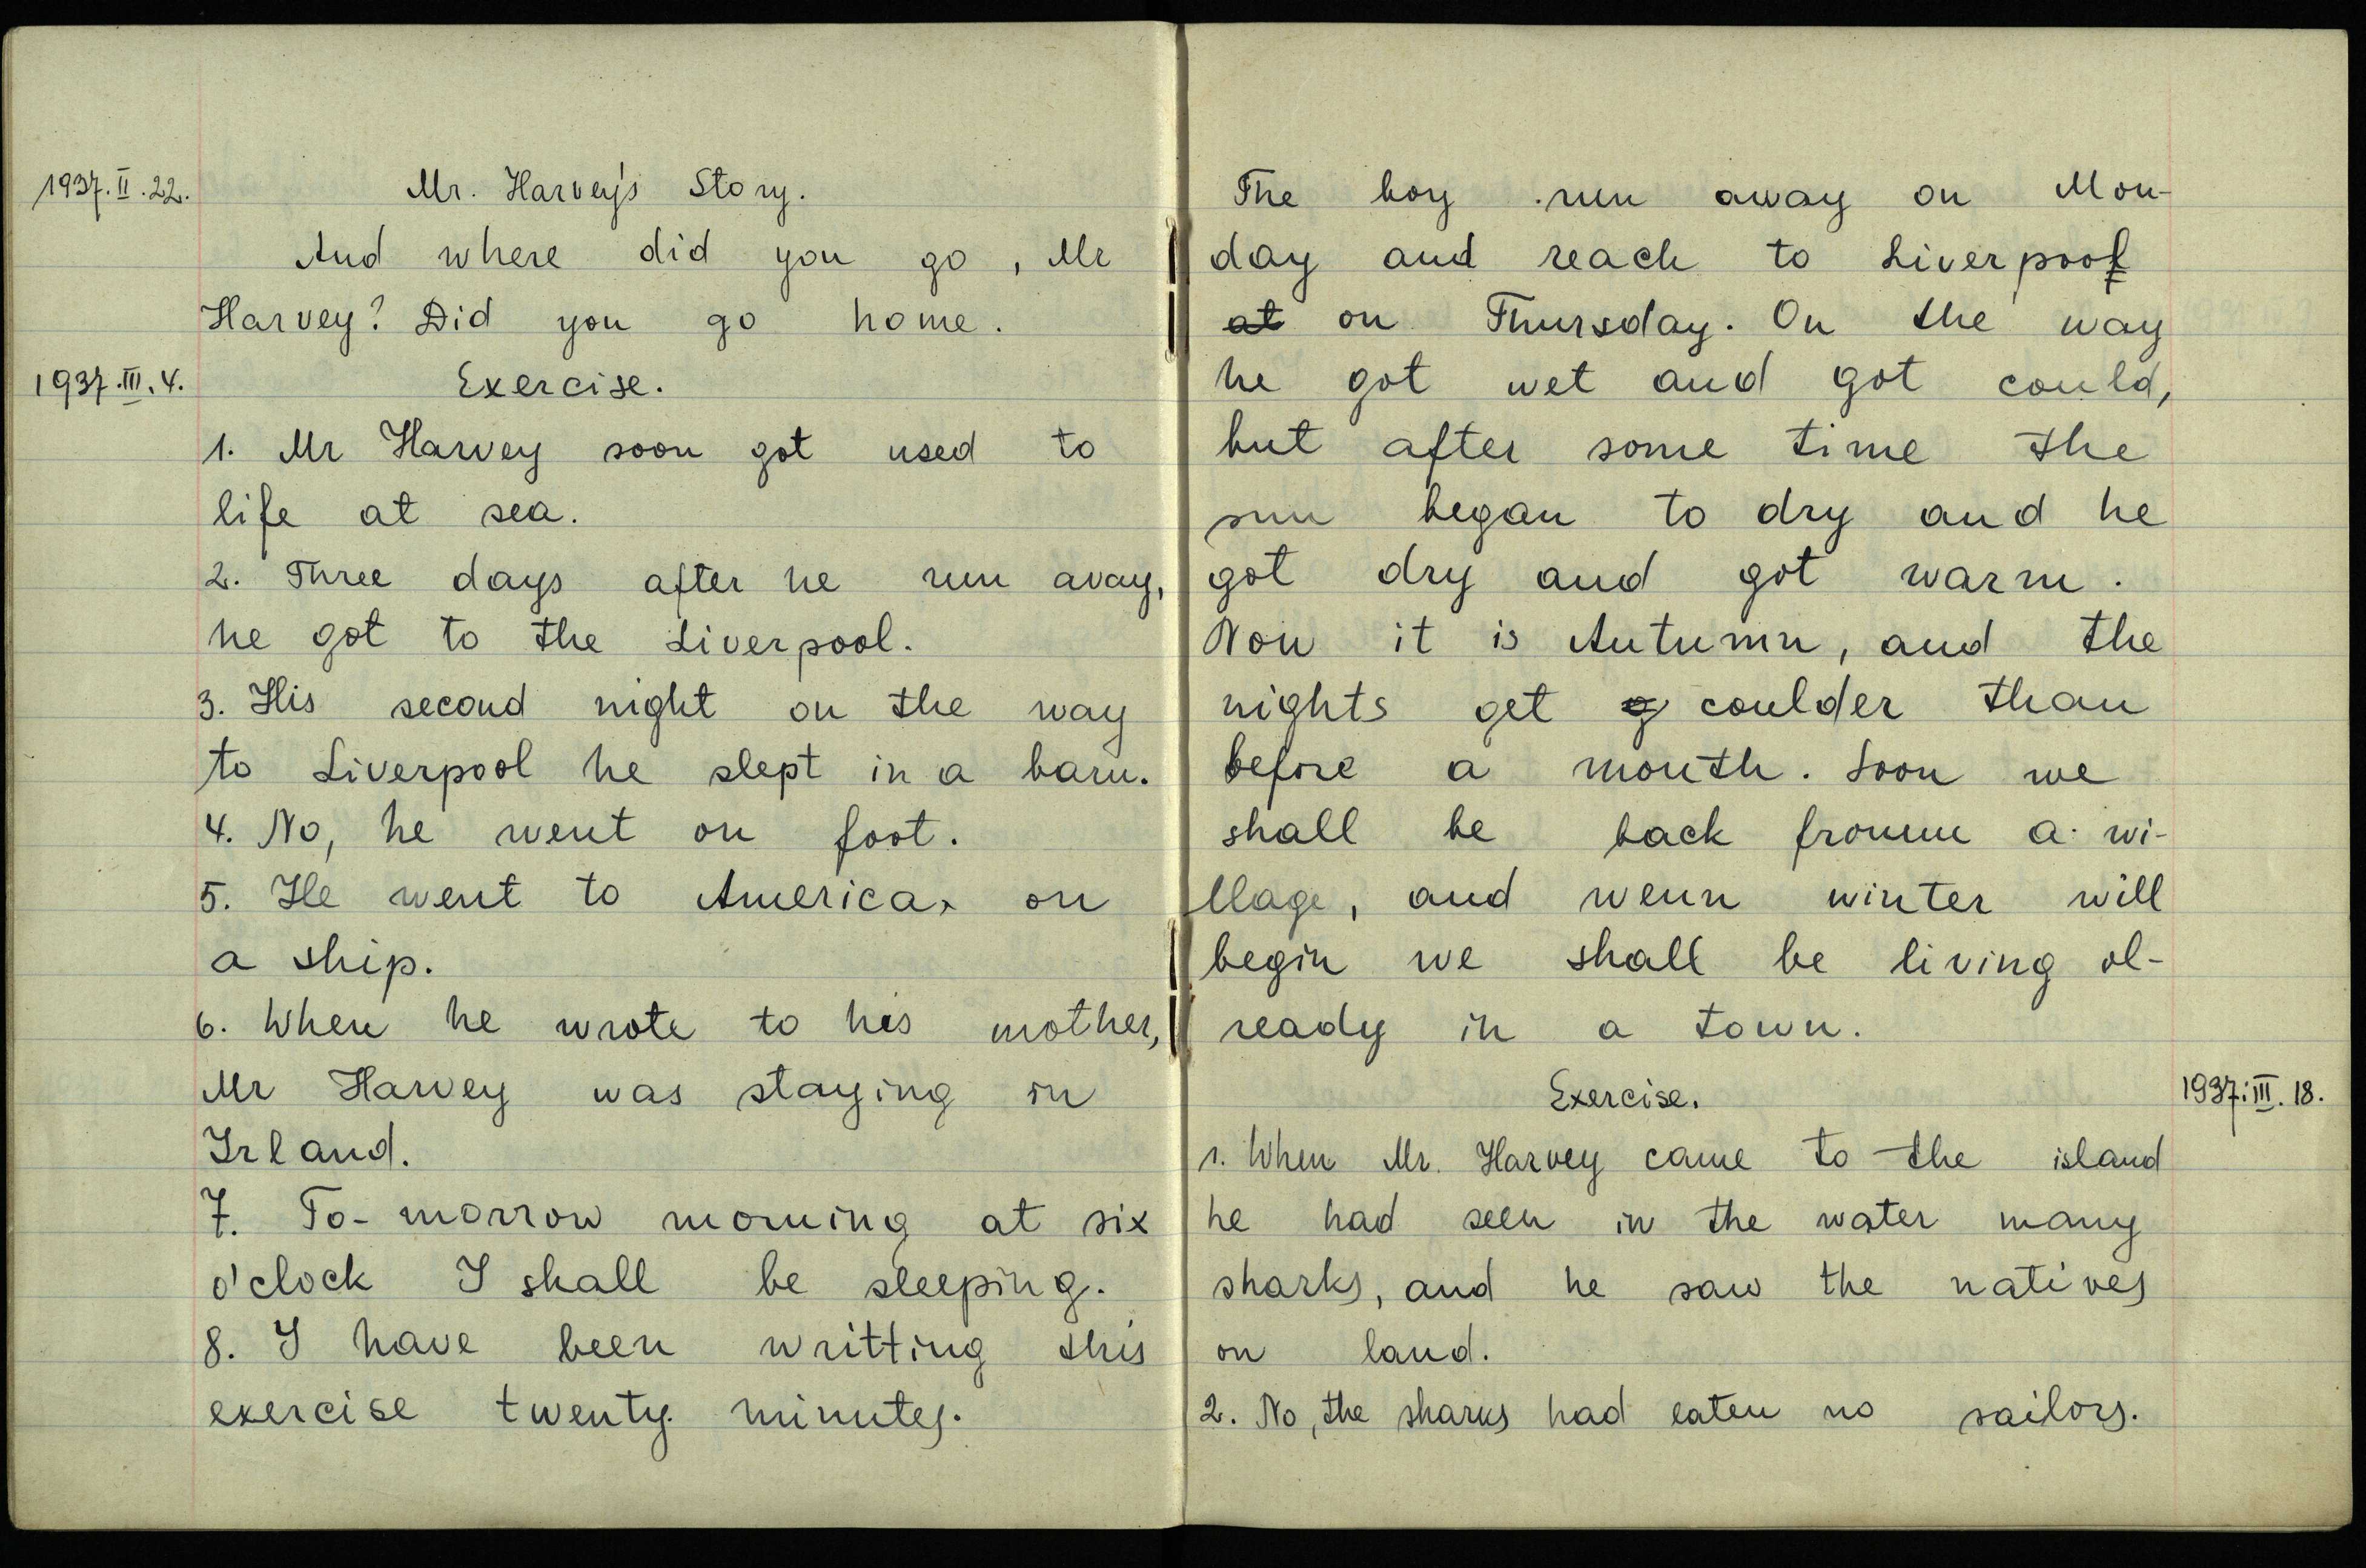 1937.II.22. Mr. Harvey's Story.
And where did you go, Mr
Harvey? Did you go home.
1937.III.4. Exercise.
1. Mr Harvey soon got used to
life at sea.
2. Three days after he run avay,
he got to the Liverpool.
3. His second night on the way
to Liverpool he slept in a barn.
4. No, he went on foot.
5. He went to America, on
a ship.
6. When he wrote to his mother,
Mr Harvey was staying in
Irland.
7. To-morrow morning at six
o'clock I shall be sleeping.
8. I have been writting this
exercise twenty minutes.
The boy run away on Mon-
day and reach to Liverpool
at on Thursday. On the way
he got wet and got could,
but after some time the
sun began to dry and he
got dry and got warm.
Now it is Autumn, and the
nights get g coulder than
before a month. Soon we
shall be back fromm a wi-
llage, and wenn winter will
begin we shall be living ol-
ready in a town.
Exercise. 1937.III.18.
1. When Mr. Harvey came to the island
he had seen in the water many
sharks, and he saw the natives
on land.
2. No, the sharks had eaten no sailors.